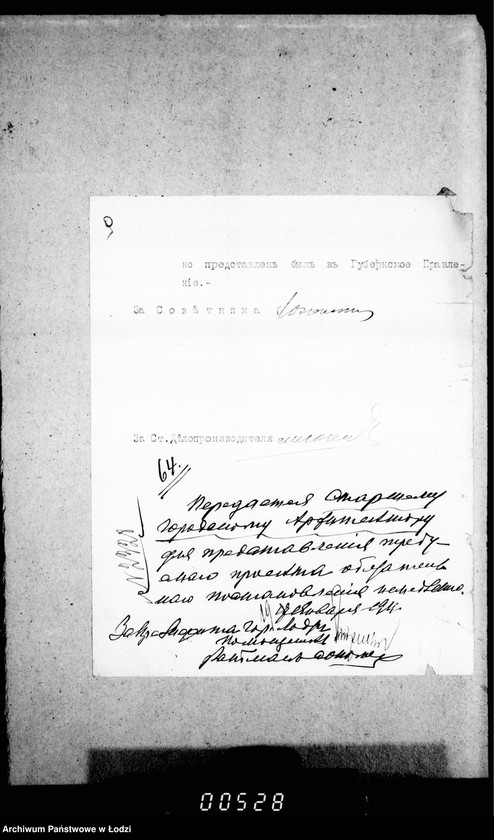 но представленъ былъ въ Губернское Правле-
ніе.-
За Совѣтника
За Ст.Дѣлопроизводителя
64.
Передается Старшему
Городскому Архитектору
для представленія требу-
емаго проекта обязатель-
наго постановленія немедленно.
Января
За Президента гор. Лодзи
N 2928
00528
Archiwum Państwowe w Łodzi